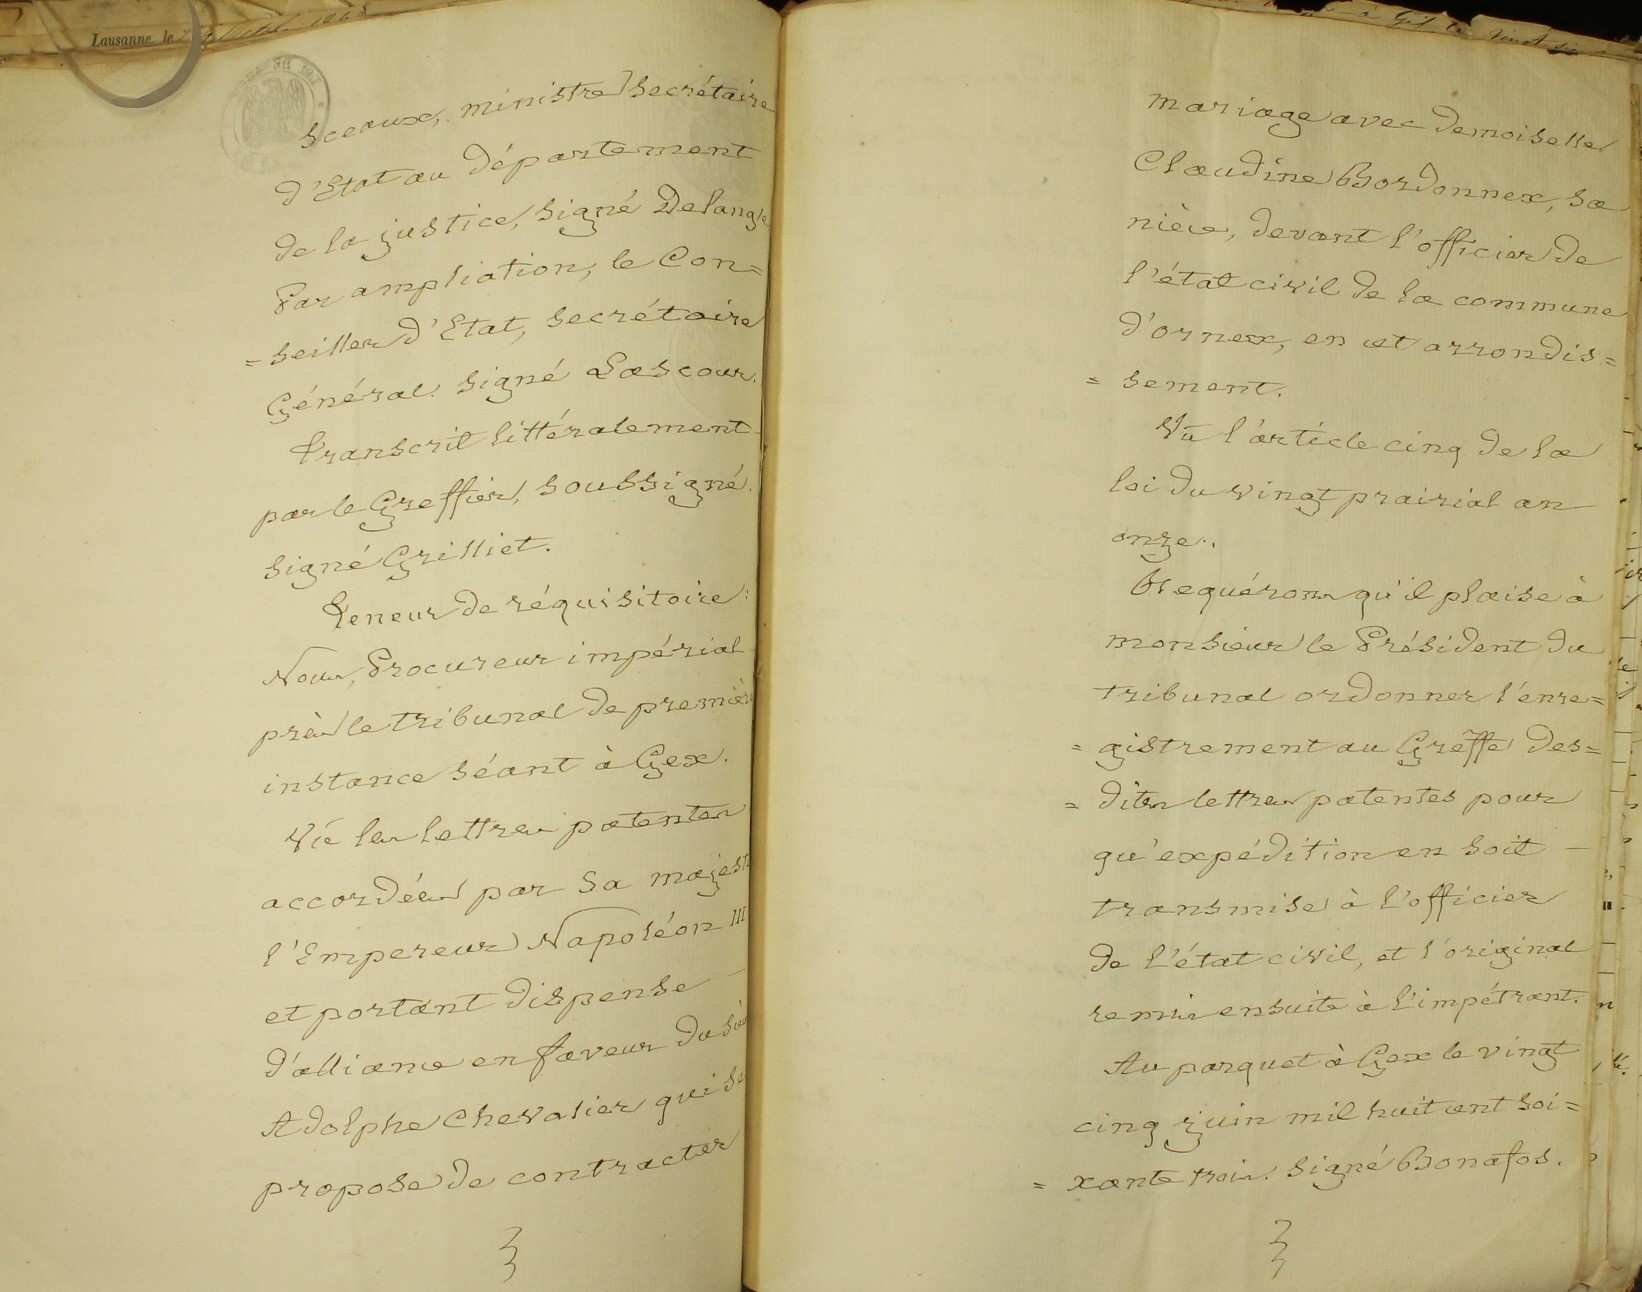 Lausanne le
sceaux, ministre secrétaire
d'Etat au département
de la justice, signé Delangle
Par ampliation, le Con=
=seiller d'Etat, secrétaire
Général. signé Lascour.
Transcrit littéralement
par le Greffier, soussigné.
signé Grilliet.
Teneur de réquisitoire:
Nous, Procureur impérial
près le tribunal de première
instance séant à Gex.
Vu les lettres patentes
accordées par Sa majesté
l'Empereur Napoléon III
et portant dispense
d'alliance en faveur du sieur
Adolphe Chevalier qui se
propose de contracter
mariage avec demoiselle
Claudine Bordonnex, sa
nièce, devant l'officier de
l'état civil de la commune
d'ornex, en cet arrondis=
=sement.
Vu l'article cinq de la
loi du vingt prairial an
onze.
Requérons qu'il plaise à
monsieur le Président du
tribunal ordonner l'enre=
=gistrement au Greffe des=
=dites lettres patentes pour
qu'expédition en soit
transmise à l'officier
de l'état civil, et l'original
remis ensuite à l'impétrant.
Au parquet à Gex le vingt
cinq juin mil huit cent soi=
=xante trois. signé Bonafos.